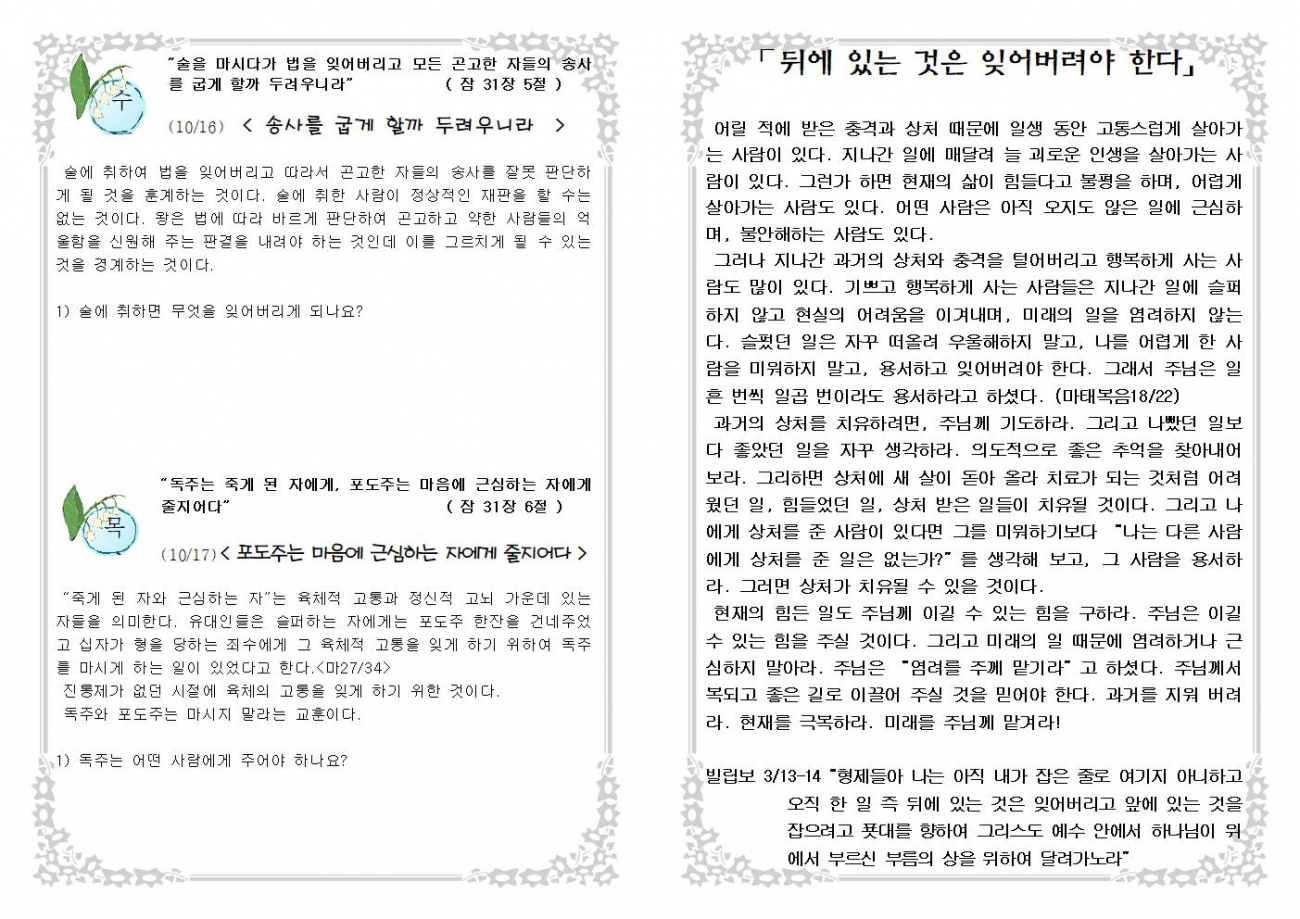 “술을 마시다가 법을 잊어버리고 모든 곤고한 자들의 송사
를 굽게 할까 두려우니라” ( 잠 31장 5절 )
수
(10/16) < 송사를 굽게 할까 두려우니라 >
술에 취하여 법을 잊어버리고 따라서 곤고한 자들의 송사를 잘못 판단하
게 될 것을 훈계하는 것이다. 술에 취한 사람이 정상적인 재판을 할 수는
없는 것이다. 왕은 법에 따라 바르게 판단하여 곤고하고 약한 사람들의 억
울함을 신원해 주는 판결을 내려야 하는 것인데 이를 그르치게 될 수 있는
것을 경계하는 것이다.
1) 술에 취하면 무엇을 잊어버리게 되나요?
“독주는 죽게 된 자에게, 포도주는 마음에 근심하는 자에게
줄지어다” ( 잠 31장 6절 )
목
(10/17) < 포도주는 마음에 근심하는 자에게 줄지어다 >
“죽게 된 자와 근심하는 자”는 육체적 고통과 정신적 고뇌 가운데 있는
자들을 의미한다. 유대인들은 슬퍼하는 자에게는 포도주 한잔을 건네주었
고 십자가 형을 당하는 죄수에게 그 육체적 고통을 잊게 하기 위하여 독주
를 마시게 하는 일이 있었다고 한다.<마27/34>
진통제가 없던 시절에 육체의 고통을 잊게 하기 위한 것이다.
독주와 포도주는 마시지 말라는 교훈이다.
1) 독주는 어떤 사람에게 주어야 하나요?
「뒤에 있는 것은 잊어버려야 한다」
어릴 적에 받은 충격과 상처 때문에 일생 동안 고통스럽게 살아가
는 사람이 있다. 지나간 일에 매달려 늘 괴로운 인생을 살아가는 사
람이 있다. 그런가 하면 현재의 삶이 힘들다고 불평을 하며, 어렵게
살아가는 사람도 있다. 어떤 사람은 아직 오지도 않은 일에 근심하
며, 불안해하는 사람도 있다.
그러나 지나간 과거의 상처와 충격을 털어버리고 행복하게 사는 사
람도 많이 있다. 기쁘고 행복하게 사는 사람들은 지나간 일에 슬퍼
하지 않고 현실의 어려움을 이겨내며, 미래의 일을 염려하지 않는
다. 슬펐던 일은 자꾸 떠올려 우울해하지 말고, 나를 어렵게 한 사
람을 미워하지 말고, 용서하고 잊어버려야 한다. 그래서 주님은 일
흔 번씩 일곱 번이라도 용서하라고 하셨다. (마태복음18/22)
과거의 상처를 치유하려면, 주님께 기도하라. 그리고 나빴던 일보
다 좋았던 일을 자꾸 생각하라. 의도적으로 좋은 추억을 찾아내어
보라. 그리하면 상처에 새 살이 돋아 올라 치료가 되는 것처럼 어려
웠던 일, 힘들었던 일, 상처 받은 일들이 치유될 것이다. 그리고 나
에게 상처를 준 사람이 있다면 그를 미워하기보다 “나는 다른 사람
에게 상처를 준 일은 없는가?” 를 생각해 보고, 그 사람을 용서하
라. 그러면 상처가 치유될 수 있을 것이다.
현재의 힘든 일도 주님께 이길 수 있는 힘을 구하라. 주님은 이길
수 있는 힘을 주실 것이다. 그리고 미래의 일 때문에 염려하거나 근
심하지 말아라. 주님은 “염려를 주께 맡기라” 고 하셨다. 주님께서
복되고 좋은 길로 이끌어 주실 것을 믿어야 한다. 과거를 지워 버려
라. 현재를 극복하라. 미래를 주님께 맡겨라!
빌립보 3/13-14 “형제들아 나는 아직 내가 잡은 줄로 여기지 아니하고
오직 한 일 즉 뒤에 있는 것은 잊어버리고 앞에 있는 것을
잡으려고 푯대를 향하여 그리스도 예수 안에서 하나님이 위
에서 부르신 부름의 상을 위하여 달려가노라”